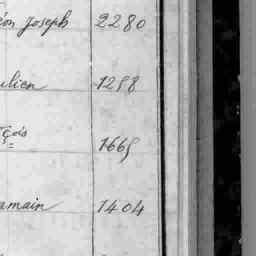 éon Joseph 2280
ulien 1298
çois 1665
amain 1404